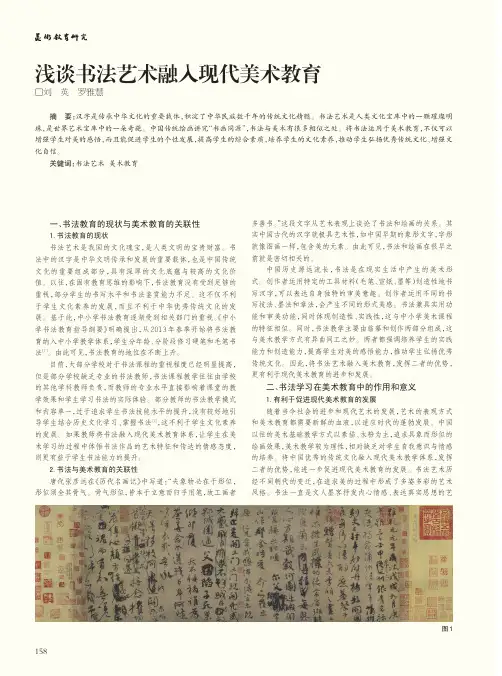 美术教育研究
浅谈书法艺术融入现代美术教育
□刘 英 罗雅慧
摘 要:汉字是传承中华文化的重要载体,积淀了中华民族数千年的传统文化精髓。书法艺术是人类文化宝库中的一颗璀璨明
珠,是世界艺术宝库中的一朵奇葩。中国传统绘画讲究“书画同源”,书法与美术有很多相似之处。将书法运用于美术教育,不仅可以
增强学生对美的感悟,而且能促进学生的个性发展,提高学生的综合素质,培养学生的文化素养,推动学生弘扬优秀传统文化、增强文
化自信。
关键词:书法艺术 美术教育
一、书法教育的现状与美术教育的关联性
1.书法教育的现状
书法艺术是我国的文化瑰宝,是人类文明的宝贵财富。书
法中的汉字是中华文明传承和发展的重要载体,也是中国传统
文化的重要组成部分,具有深厚的文化底蕴与较高的文化价
值。以往,在固有教育思维的影响下,书法教育没有受到足够的
重视,部分学生的书写水平和书法鉴赏能力不足。这不仅不利
于学生文化素养的发展,而且不利于中华优秀传统文化的发
展。基于此,中小学书法教育逐渐受到相关部门的重视,《中小
学书法教育指导纲要》明确提出,从2013年春季开始将书法教
育纳入中小学教学体系,学生分年龄、分阶段修习硬笔和毛笔书
法[1]。由此可见,书法教育的地位在不断上升。
目前,大部分学校对于书法课程的重视程度已经明显提高,
但是部分学校缺乏专业的书法教师,书法课程教学往往由学校
的其他学科教师负责,而教师的专业水平直接影响着课堂的教
学效果和学生学习书法的实际体验。部分教师的书法教学模式
和内容单一,过于追求学生书法技能水平的提升,没有较好地引
导学生结合历史文化学习、掌握书法[2],这不利于学生文化素养
的发展。如果教师将书法融入现代美术教育体系,让学生在美
术学习的过程中体悟书法作品的艺术特征和传达的情感态度,
则更有益于学生书法能力的提升。
2.书法与美术教育的关联性
唐代张彦远在《历代名画记》中写道:“夫象物必在于形似,
形似须全其骨气。骨气形似,皆本于立意而归乎用笔,故工画者
多善书。”这段文字从艺术表现上谈论了书法和绘画的关系。其
实中国古代的汉字就极具艺术性,如中国早期的象形文字,字形
就像图画一样,包含美的元素。由此可见,书法和绘画在很早之
前就是密切相关的。
中国历史源远流长,书法是在现实生活中产生的美术形
式。创作者运用特定的工具材料(毛笔、宣纸、墨等)创造性地书
写汉字,可以表达自身独特的审美意趣。创作者运用不同的书
写技法、墨法和章法,会产生不同的形式美感。书法兼具实用功
能和审美功能,同时体现创造性、实践性,这与中小学美术课程
的特征相似。同时,书法教学主要由临摹和创作两部分组成,这
与美术教学方式有异曲同工之妙。两者都强调培养学生的实践
能力和创造能力,提高学生对美的感悟能力,推动学生弘扬优秀
传统文化。因此,将书法艺术融入美术教育,发挥二者的优势,
更有利于现代美术教育的进步和发展。
二、书法学习在美术教育中的作用和意义
1.有利于促进现代美术教育的发展
随着当今社会的进步和现代艺术的发展,艺术的表现方式
和美术教育都需要新鲜的血液,以适应时代的蓬勃发展。中国
以往的美术基础教学方式以素描、水粉为主,追求具象而形似的
绘画效果,美术教学较为理性,相对缺乏对学生自我意识与情感
的培养。将中国优秀的传统文化融入现代美术教学体系,发挥
二者的优势,能进一步促进现代美术教育的发展。书法艺术历
经不同朝代的变迁,在追求美的过程中形成了多姿多彩的艺术
风格。书法一直是文人墨客抒发内心情感、表达真实思想的艺
图1
158